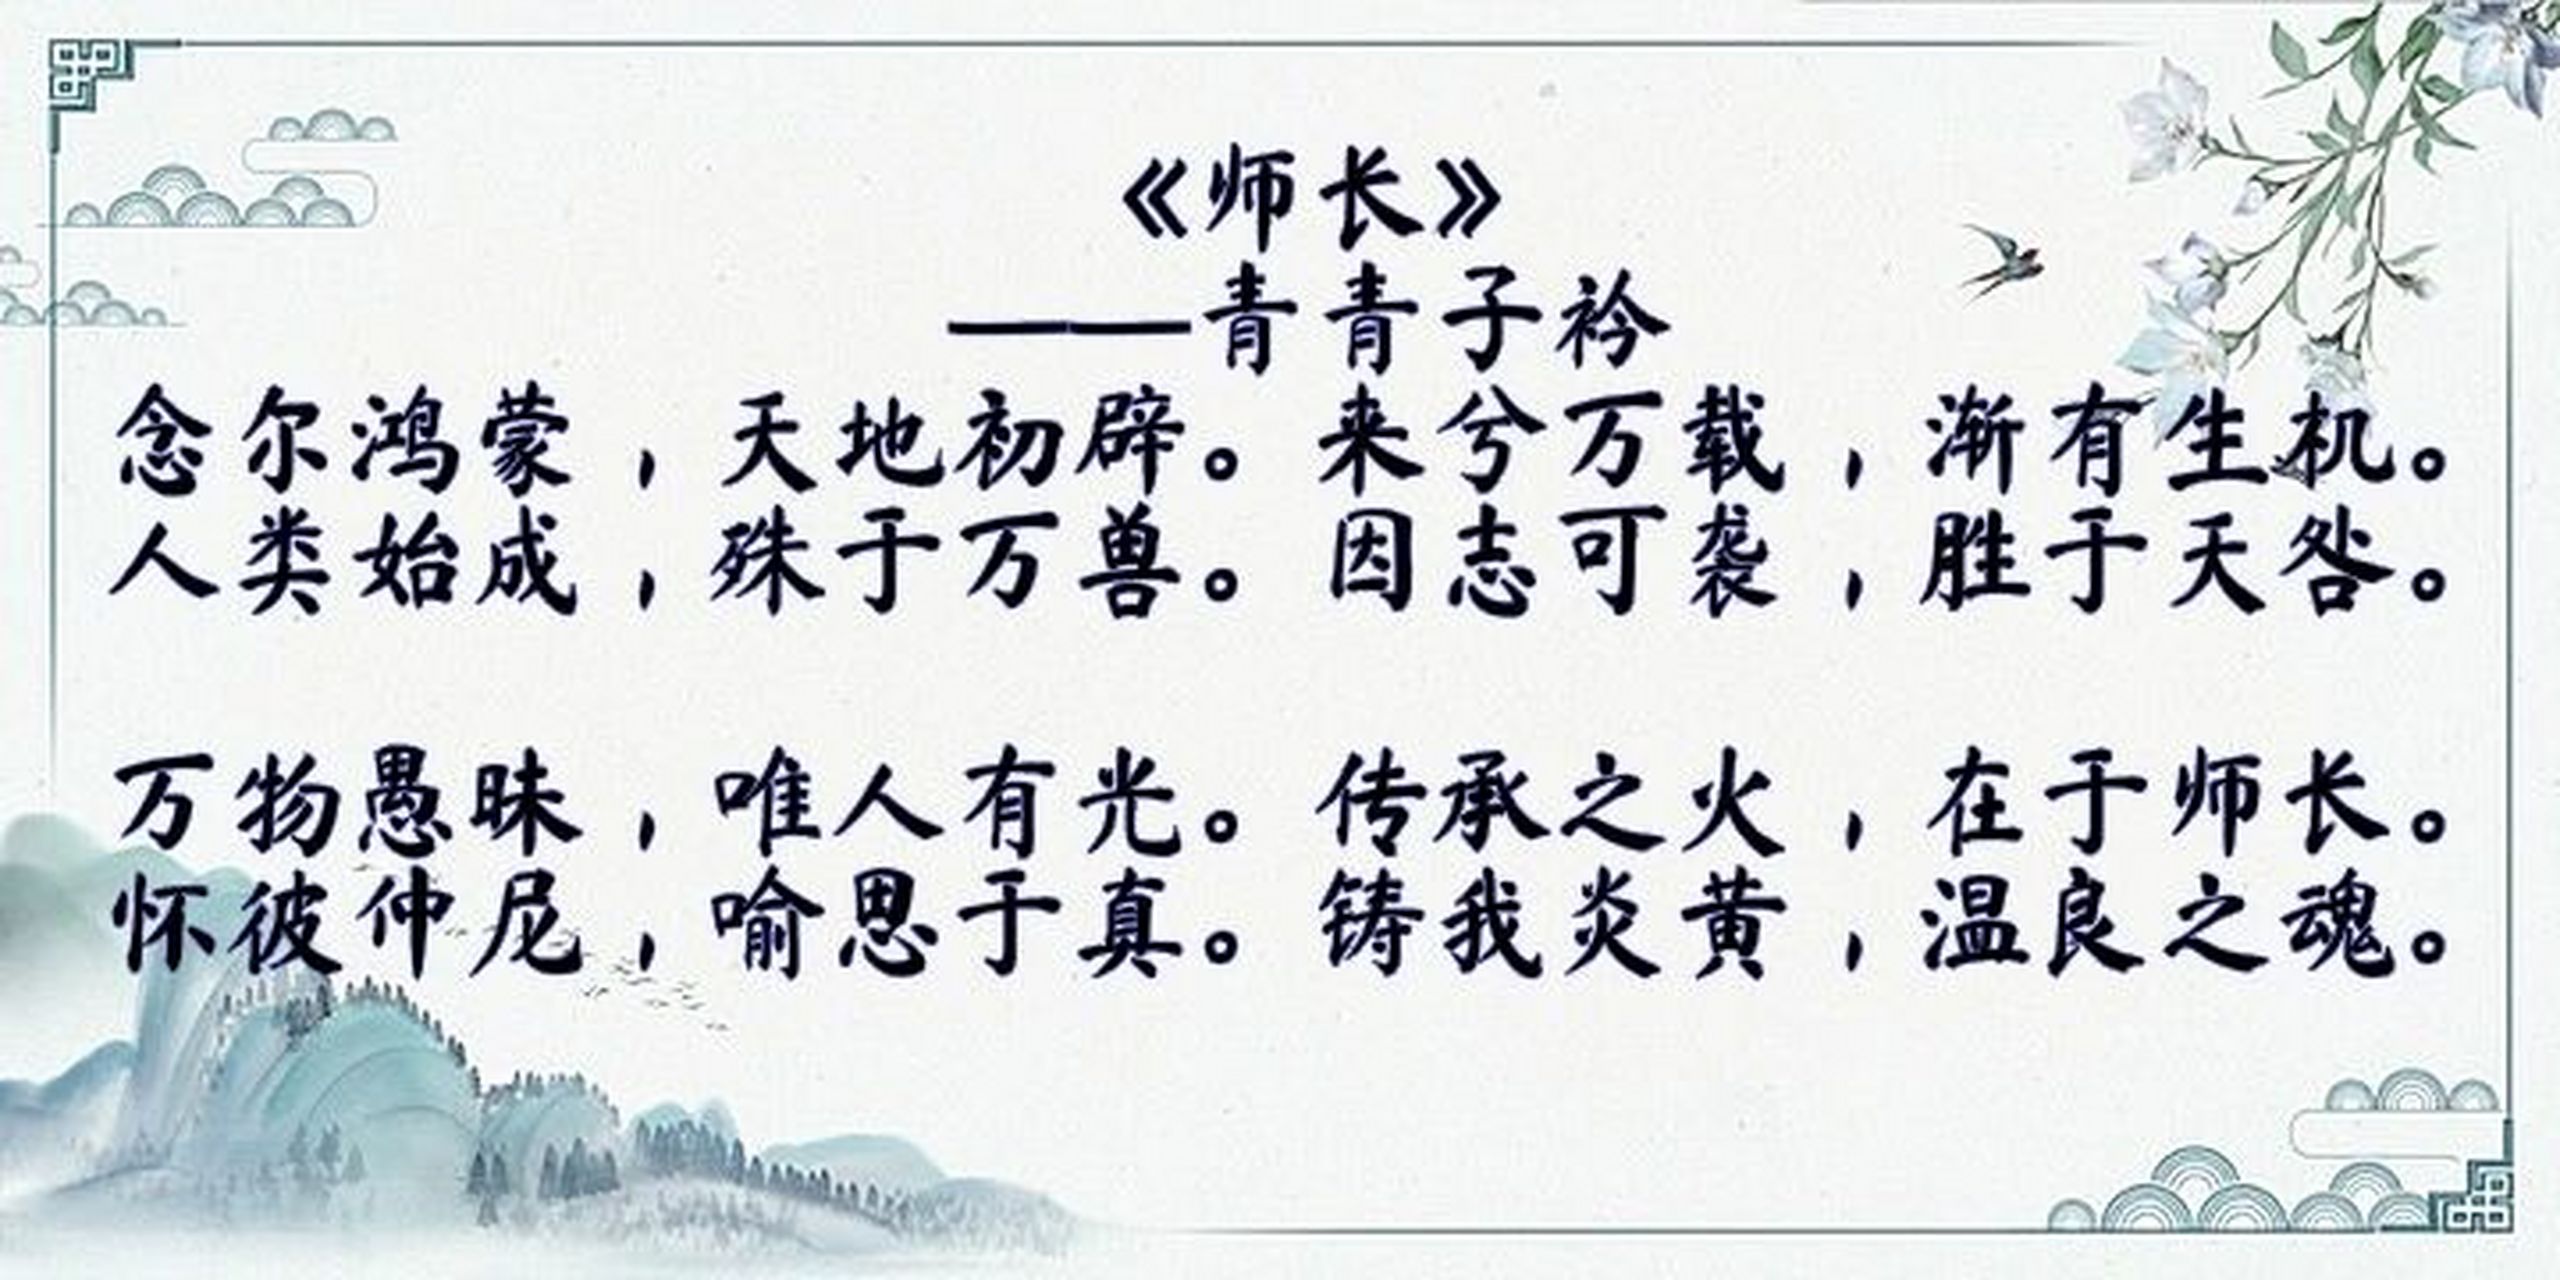 《师长》
——青青子衿
念尔鸿蒙，天地初辟。来兮万载，渐有生机。
人类始成，殊于万兽。因志可袭，胜于天咎。
万物愚昧，唯人有光。传承之火，在于师长。
怀彼仲尼，喻思于真。铸我炎黄，温良之魂。